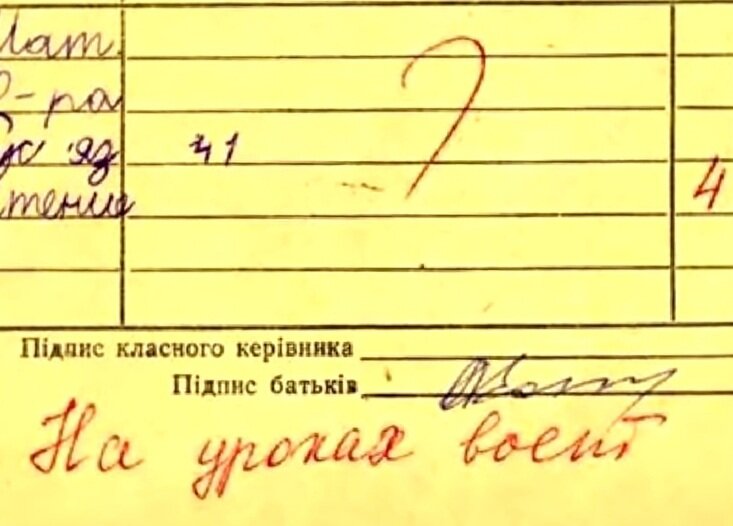 Мат.
?
-ра
яз 41
4
тение
Підпис класного керівника
Підпис батьків
На уроках воет